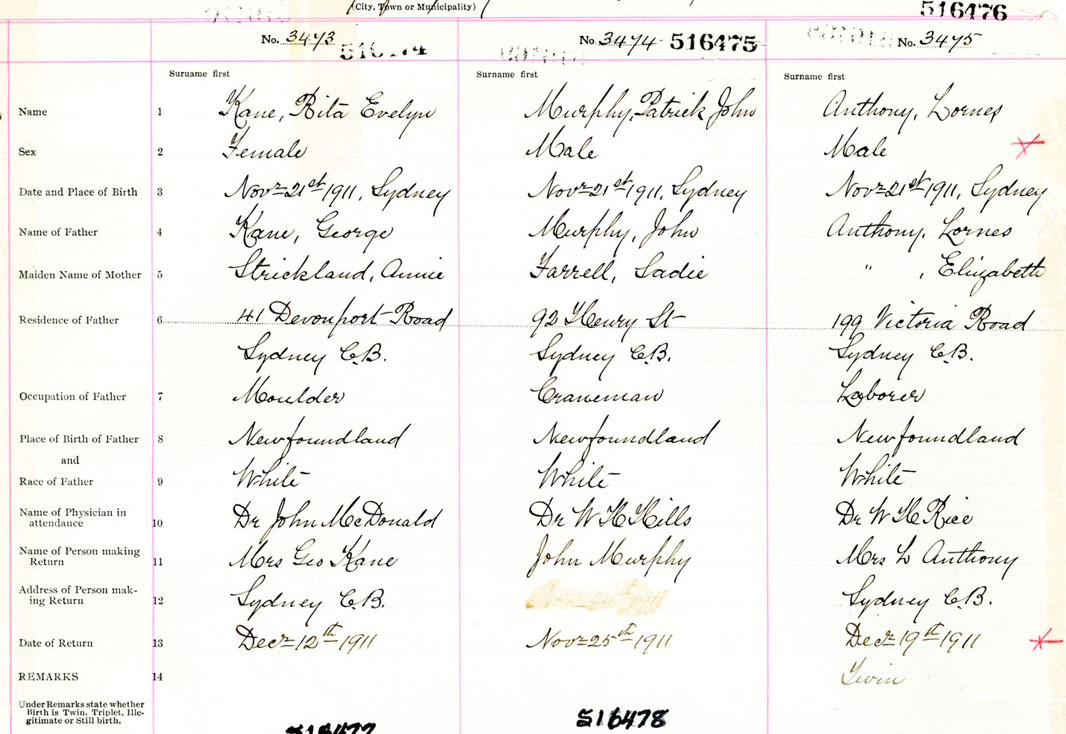 (City, Town or Municipality)
516476
No. 3473
No 3474 516475
No. 3475
Surname first Surname first Surname first
Name 1 Kane, Rita Evelyn Murphy, Patrick John Anthony, Lornes
Sex 2 Female Male Male
Date and Place of Birth 3 Novr 21st 1911, Sydney Novr 21st 1911, Sydney Novr 21st 1911, Sydney
Name of Father 4 Kane, George Murphy, John Anthony, Lornes
Maiden Name of Mother 5 Strickland, Annie Farrell, Sadie " , Elizabeth
Residence of Father 6 41 Devonport Road 92 Henry St 199 Victoria Road
Sydney C.B. Sydney C.B. Sydney C.B.
Occupation of Father 7 Moulder Craneman Laborer
Place of Birth of Father 8 Newfoundland Newfoundland Newfoundland
and
Race of Father 9 White White White
Name of Physician in
attendance 10 Dr John McDonald Dr W H Hills Dr W McRice
Name of Person making
Return 11 Mrs Geo Kane John Murphy Mrs L Anthony
Address of Person mak-
ing Return 12 Sydney C.B. Sydney C.B.
Date of Return 13 Decr 12th 1911 Novr 25th 1911 Decr 19th 1911
REMARKS 14 Twin
Under Remarks state whether
Birth is Twin, Triplet, Ille-
gitimate or Still birth.
516477 516478